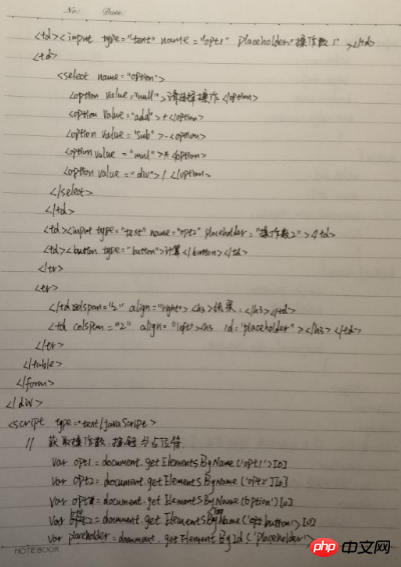 No: Date:
<td><input type="text" name="opt1" placeholder="操作数1" ></td>
<td>
<select name="option">
<option value="null">请选择操作</option>
<option value="add">+</option>
<option value="sub">-<option>
<option value="mul">*<option>
<option value="div">/</option>
</select>
</td>
<td><input type="text" name="opt2" placeholder="操作数2"></td>
<td><button type="button">计算</button></td>
</tr>
<tr>
</td colspan="3" align="right><h3>结果:</h3></td>
<td colspan="2" align="left"><h3 id="placeholder"></h3></td>
</tr>
</table>
</form>
</div>
<script type="text/javaScript>
// 获取操作数 按钮 占位符
var opt1=document.getElementsByName('opt1')[0]
var opt2=document.getElementsByName('opt2')[0]
var =document.getElementsByName(option')[0]
var =document.getElementsByName(' button')[0]
var placeholder=document.getElementById('placeholder')
NOTEBOOK
php中文网